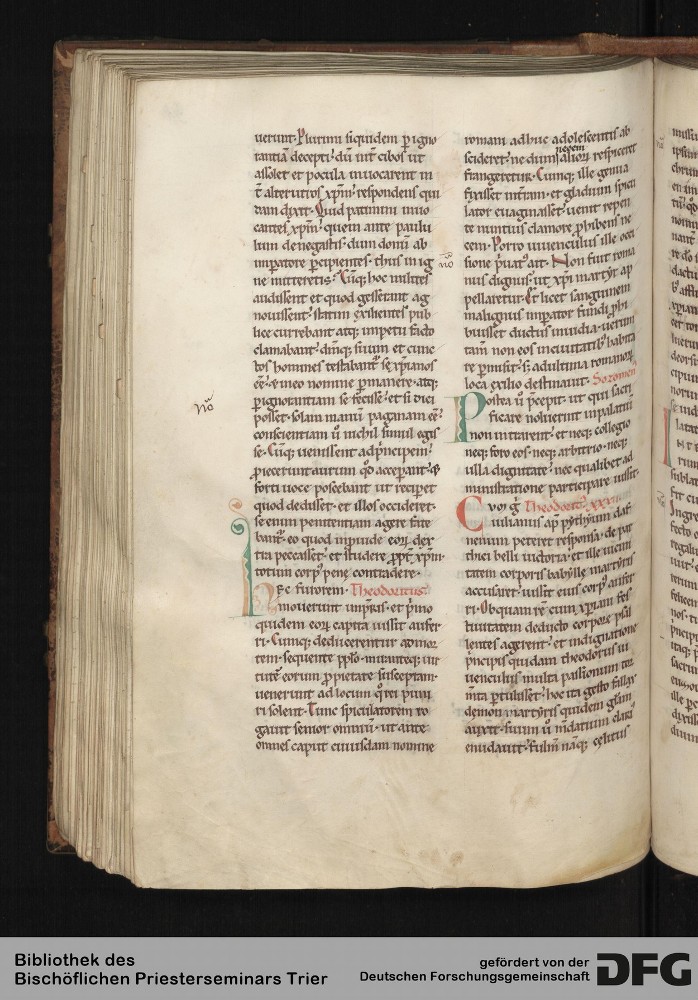 uerunt. Plurimi siquidem p igno
rantiā decepti. dū uel cibos ut
assolet et pocula inuocarent in
t alterutros xpm. respondens qui
dam dixit. Quid patimini inuo
cantes xpm. quem ante paulu
lum denegastis. dum domū ab
imperatore percipientes. thus in ig
ne mitteretis. Cūq; hoc milites
audissent et quod gesserant ag
nouissent. statim exilientes pub
lice currebant atq; impetu facto
clamabant. dmq; suum et cunc
tos homines testabant se xpianos
eē. et in eo nomine pmanere. atq;
p ignorantiam se fecisse. et si dici
posset. solam manū paganam eē.
conscientiam ū nichil simul egis
se. Cūq; uenissent ad principem.
piecerunt aurum qd acceperant. et
forti uoce poscebant ut reciperet
quod dedisset. et illos occideret.
se enim penitentiam agere fate
bant. eo quod inprouide eorum dex
tra peccasset. et studere ppt xpm
totum corpus pene contradere.
Hec furorem. Theodoritus.
mouerunt impris. et primo
quidem eorum capita iussit aufer
ri. Cumq; deducerentur ad mor
tem. sequente pplo. miranteq; uir
tutē eorum. p pietate susceptam.
uenerunt ad locum quo rei puni
ri solent. Tunc spiculatorem ro
gauit senior omniū. ut ante
omnes caput cuiusdam nomine
romani adhuc adolescentis ab
scideret. ne dum necem aliorum respiceret
frangeretur. Cumq; ille genua
fixisset in terram. et gladium spicu
lator euaginasset. uenit repen
te nuntius clamore phibens ne
cem. Porro iuuenculus ille occi
sione priuatus ait. Non fuit roma
nus dignus. ut xpi martyr ap
pellaretur. Et licet sanguinem
malignus impator fundi phi
buisset ductus inuidia. uerum
tam non eos in ciuitatibus habita
re pmisit. sed ad ultima romanorum
loca exilio destinauit. Sozomen
Postea ū precepit. ut qui sacri
ficare noluerint in palatiū
non intrarent. et neq; collegio
neq; foro eos. neq; arbitrio. neq;
ulla dignitate. nec qualibet ad
ministratione participare iussit.
Theodoritus. XXXI.
iulianus ap pythyum daf
nenum peteret responsa. de par
thici belli uictoria. et ille uicini
tatem corporis babyle martyris
accusaret. iussit eius corpus aufer
ri. Ob quam re cum xpiani fes
tiuitatem deducto corpore psal
lentes agerent. et indignatione
principis quidam theodorus iu
uenculus multa passionum tor
menta ptulisset. hoc ita gesto fallax
demon martyris quidem gliam
auxit. suum ū mendatium clarius
enudauit. Fulmen namq; celitus
Bibliothek des
Bischöflichen Priesterseminars Trier
gefördert von der
Deutschen Forschungsgemeinschaft
DFG